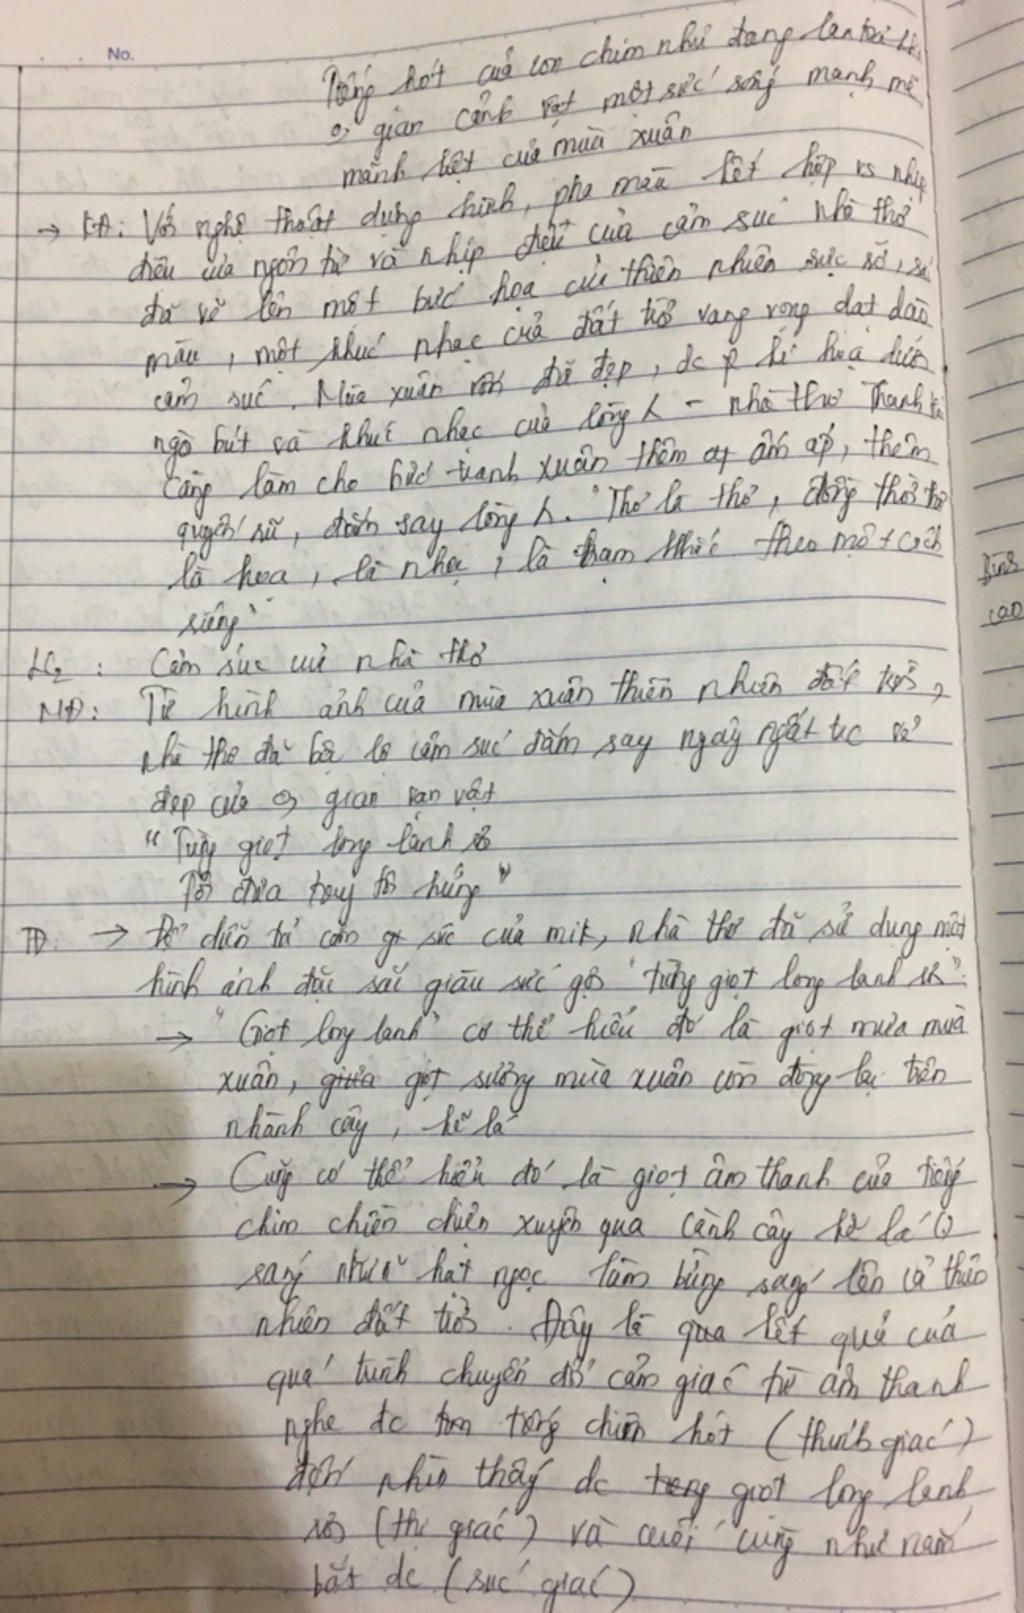 No.
Tiếng hót của con chim như đang lan toả
gian cảnh vật một sức sống mạnh mẽ
mãnh liệt của mùa xuân
→ KĐ: Với nghệ thuật dựng hình, pha màu kết hợp vs nhịp
điệu của ngôn từ và nhịp điệu của cảm xúc nhà thơ
đã vẽ lên một bức họa của thiên nhiên sực sỡ, sắc
màu, một khúc nhạc của đất trời vang vọng dạt dào
cảm xúc. Mùa xuân vốn đã đẹp, dc kí họa dưới
ngòi bút và khúc nhạc của lòng - nhà thơ Thanh Hải
càng làm cho bức tranh xuân thêm ấm áp, thêm
quyến rũ, đắm say lòng. "Thơ là thơ, đồng thời thơ
là họa, là nhạc, là chạm khắc theo một cách
riêng"
LC2: Cảm xúc của nhà thơ
NĐ: Từ hình ảnh của mùa xuân thiên nhiên đất trời,
nhà thơ đã bộc lộ cảm xúc đắm say ngây ngất trc vẻ
đẹp của gian vạn vật
"Từng giọt long lanh rơi
Tôi đưa tay tôi hứng"
TĐ: → Để diễn tả cảm xúc của mik, nhà thơ đã sử dụng một
hình ảnh đặc sắc giàu sức gợi "từng giọt long lanh rơi".
→ "Giọt long lanh" có thể hiểu đó là giọt mưa mùa
xuân, giọt sương mùa xuân còn đọng lại trên
nhành cây, kẽ lá
→ Cũng có thể hiểu đó là giọt âm thanh của tiếng
chim chiền chiện xuyên qua cành cây kẽ lá
sáng như hạt ngọc làm bừng sáng lên cả thiên
nhiên đất trời. Đây là kết quả của
quá trình chuyển đổi cảm giác từ âm thanh
nghe dc tiếng chim hót (thính giác)
đến nhìn thấy dc giọt long lanh
rơi (thị giác) và cuối cùng như nắm
bắt dc (xúc giác)